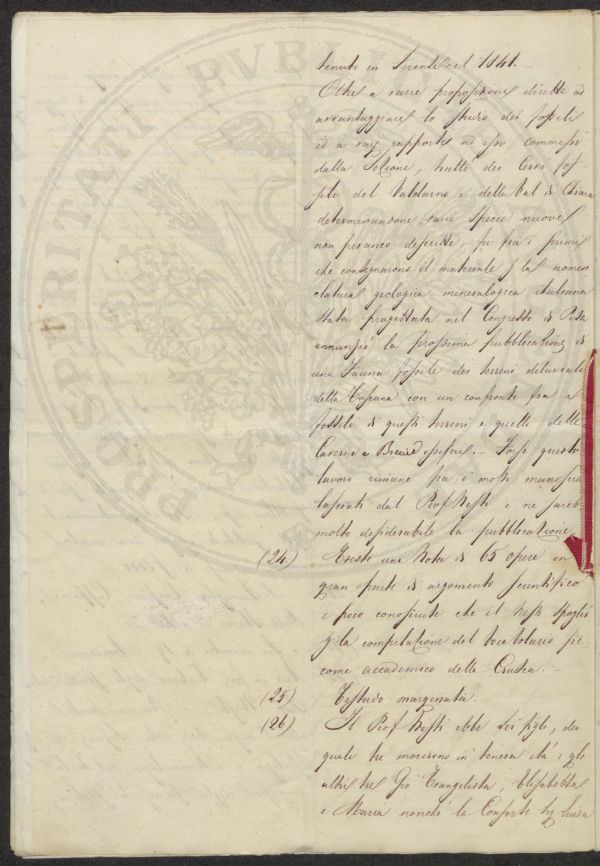 tenuto in Firenze nel 1841.
Oltre a varie proposizioni dirette ad
avvantaggiare lo studio dei fossili
ed a varj rapporti ad esso commessi
dalla Sezione, trattò dei Cervi fos
sili del Valdarno e della Val di Chiana
determinandone varie specie nuove
non peranco descritte, fu fra i primi
che consegnarono il materiale p la nomen
clatura geologica mineralogica italiana
stata progettata nel Congresso di Pisa
annunziò la prossima pubblicazione di
una Fauna fossile dei terreni diluviali
della Toscana con un confronto fra i
fossili di questi terreni e quelli delle
Caverne a Breccie ossifere. - Forse questo
lavoro rimane fra i molti manoscri
lasciati dal Prof Nesti e ne sareb
molto desiderabile la pubblicazione
(24.) Esiste una Nota di 65 opere in
gran parte di argomento scientifico
e poco conosciute che il Nesti spogliò
p la compilazione del Vocabolario sic
come accademico della Crusca. -
(25) Testudo marginata.
(26) Il Prof Nesti ebbe sei figli, dei
quali tre morirono in tenera età e gli
altri tre Gio Evangelista, Elisabetta
e Maria nonché la Consorte Luisa